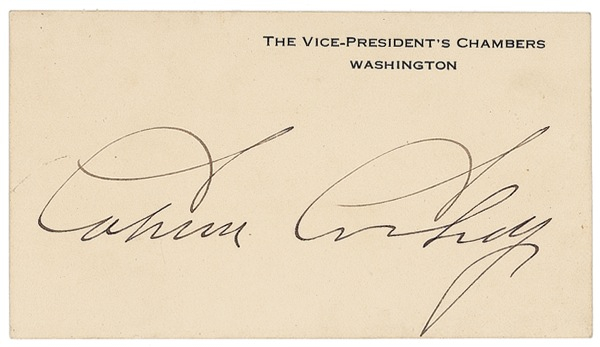 THE VICE-PRESIDENT'S CHAMBERS
WASHINGTON
Calvin Coolidge